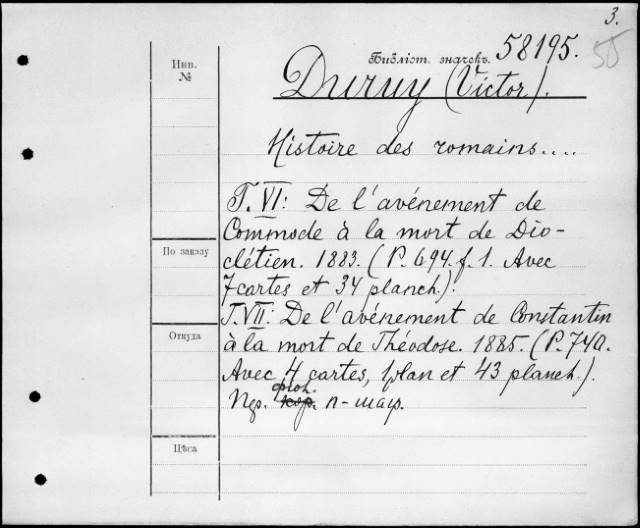 3.
Инв.
№
Библіот. значекъ. 58195.
55
Duruy (Victor).
Histoire des romains....
T. VI: De l'avénement de
Commode à la mort de Dio-
clétien. 1883. (P. 694. f. 1. Avec
7 cartes et 34 planch.).
T. VII: De l'avénement de Constantin
à la mort de Théodose. 1885. (P. 740.
Avec 4 cartes, 1 plan et 43 planch.).
По заказу
Откуда
Цѣна